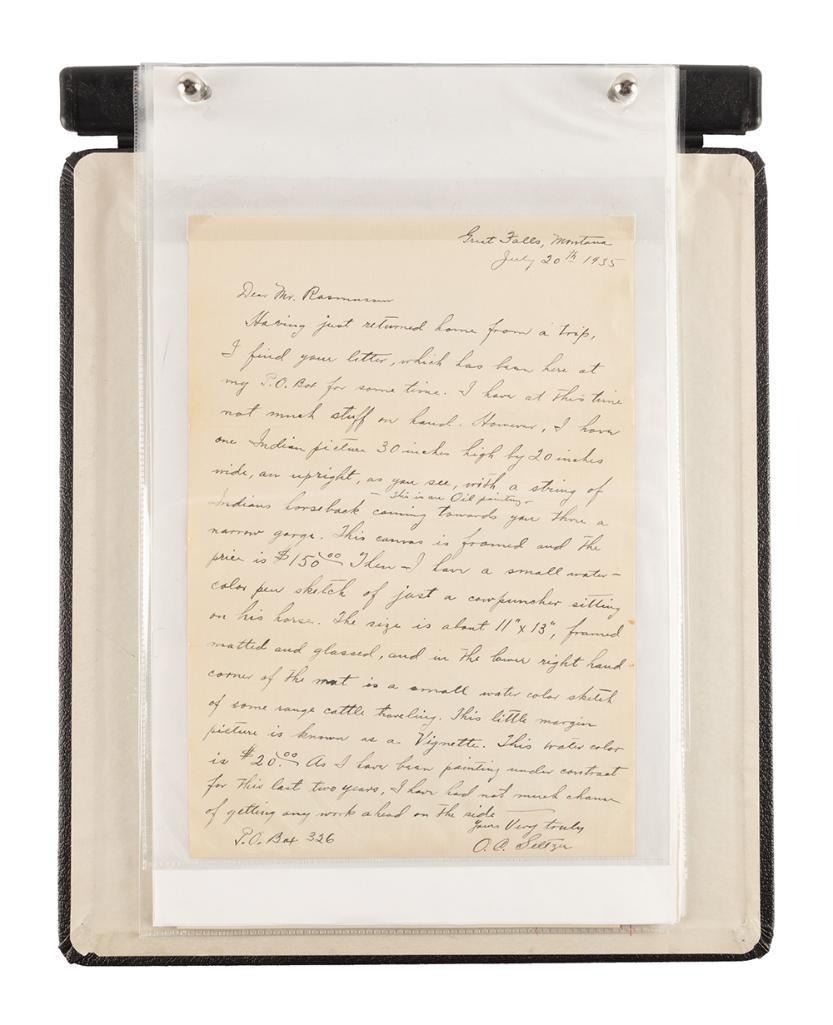 Great Falls, Montana
July 20th 1935
Dear Mr. Rasmussen
Having just returned home from a trip,
I find your letter, which has been here at
my P.O. Box for some time. I have at this time
not much stuff on hand. However, I have
one Indian picture 30 inches high by 20 inches
wide, an upright, as you see, with a string of
- This is an Oil painting -
Indians horseback coming towards you thru a
narrow gorge. This canvas is framed and the
price is $150.00 Then - I have a small water-
color pen sketch of just a cowpuncher sitting
on his horse. The size is about 11" x 13", framed
matted and glassed, and in the lower right hand
corner of the mat is a small water color sketch
of some range cattle traveling. This little margin
picture is known as a Vignette. This water color
is $20.00 As I have been painting under contract
for this last two years, I have had not much chance
of getting any work ahead on the side
Yours Very truly
P.O. Box 326
O. C. Seltzer